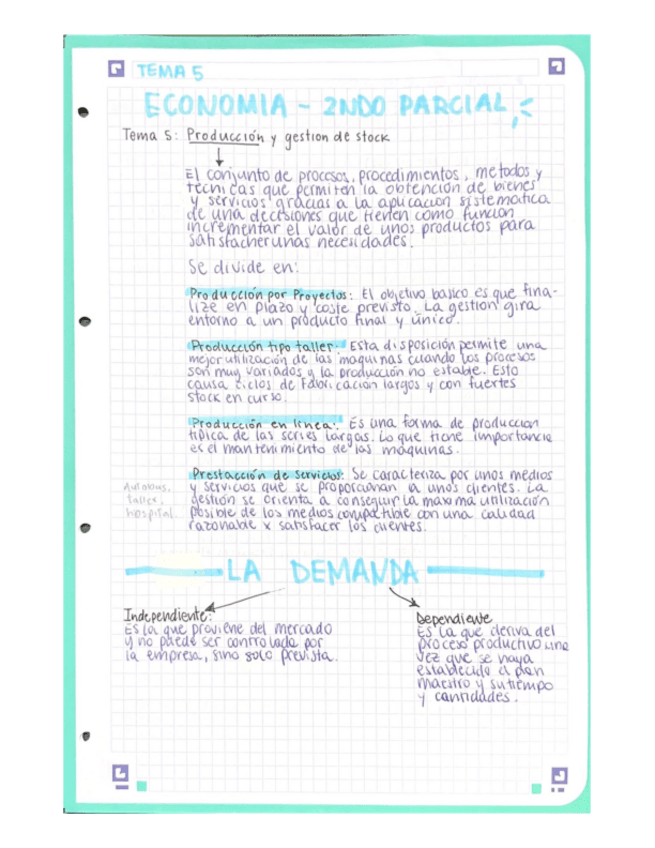 TEMA 5
ECONOMIA - 2NDO PARCIAL
Tema 5: Producción y gestion de stock
El conjunto de procesos, procedimientos, metodos y
tecnicas que permiten la obtención de bienes
y servicios gracias a la aplicacion sistematica
de una decisiones que tienen como funcion
incrementar el valor de unos productos para
satisfacher unas necesidades.
Se divide en:
Producción por Proyectos: El objetivo basico es que fina-
lize en plazo y coste previsto. La gestion gira
entorno a un producto final y único.
Producción tipo taller: Esta disposición permite una
mejor utilización de las maquinas cuando los procesos
son muy variados y la producción no estable. Esto
causa ciclos de fabricación largos y con fuertes
stock en curso.
Producción en línea: Es una forma de produccion
tipica de las series largas. Lo que tiene importancia
es el mantenimiento de las máquinas.
Prestacción de servicios: Se caracteriza por unos medios
y servicios que se proporcionan a unos clientes. La
gestión se orienta a conseguir la máxima utilización
posible de los medios compatible con una calidad
razonable x satisfacer los clientes.
Autobus,
taller,
hospital
LA DEMANDA
Independiente:
Es la que proviene del mercado
y no puede ser controlada por
la empresa, sino solo prevista.
Dependiente
Es la que deriva del
proceso productivo una
vez que se haya
establecido el plan
maestro y su tiempo
y cantidades.